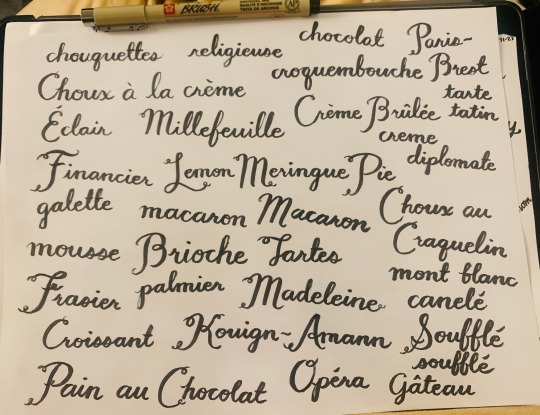 BRUSH
chouquettes religieuse chocolat Paris-
croquembouche Brest
Choux à la crème tarte
Éclair Millefeuille Crème Brûlée tatin
creme
Financier Lemon Meringue Pie diplomate
galette macaron Macaron Choux au
mousse Brioche Tartes Craquelin
mont blanc
Frasier palmier Madeleine canelé
Croissant Kouign-Amann Soufflé
soufflé
Pain au Chocolat Opéra Gâteau